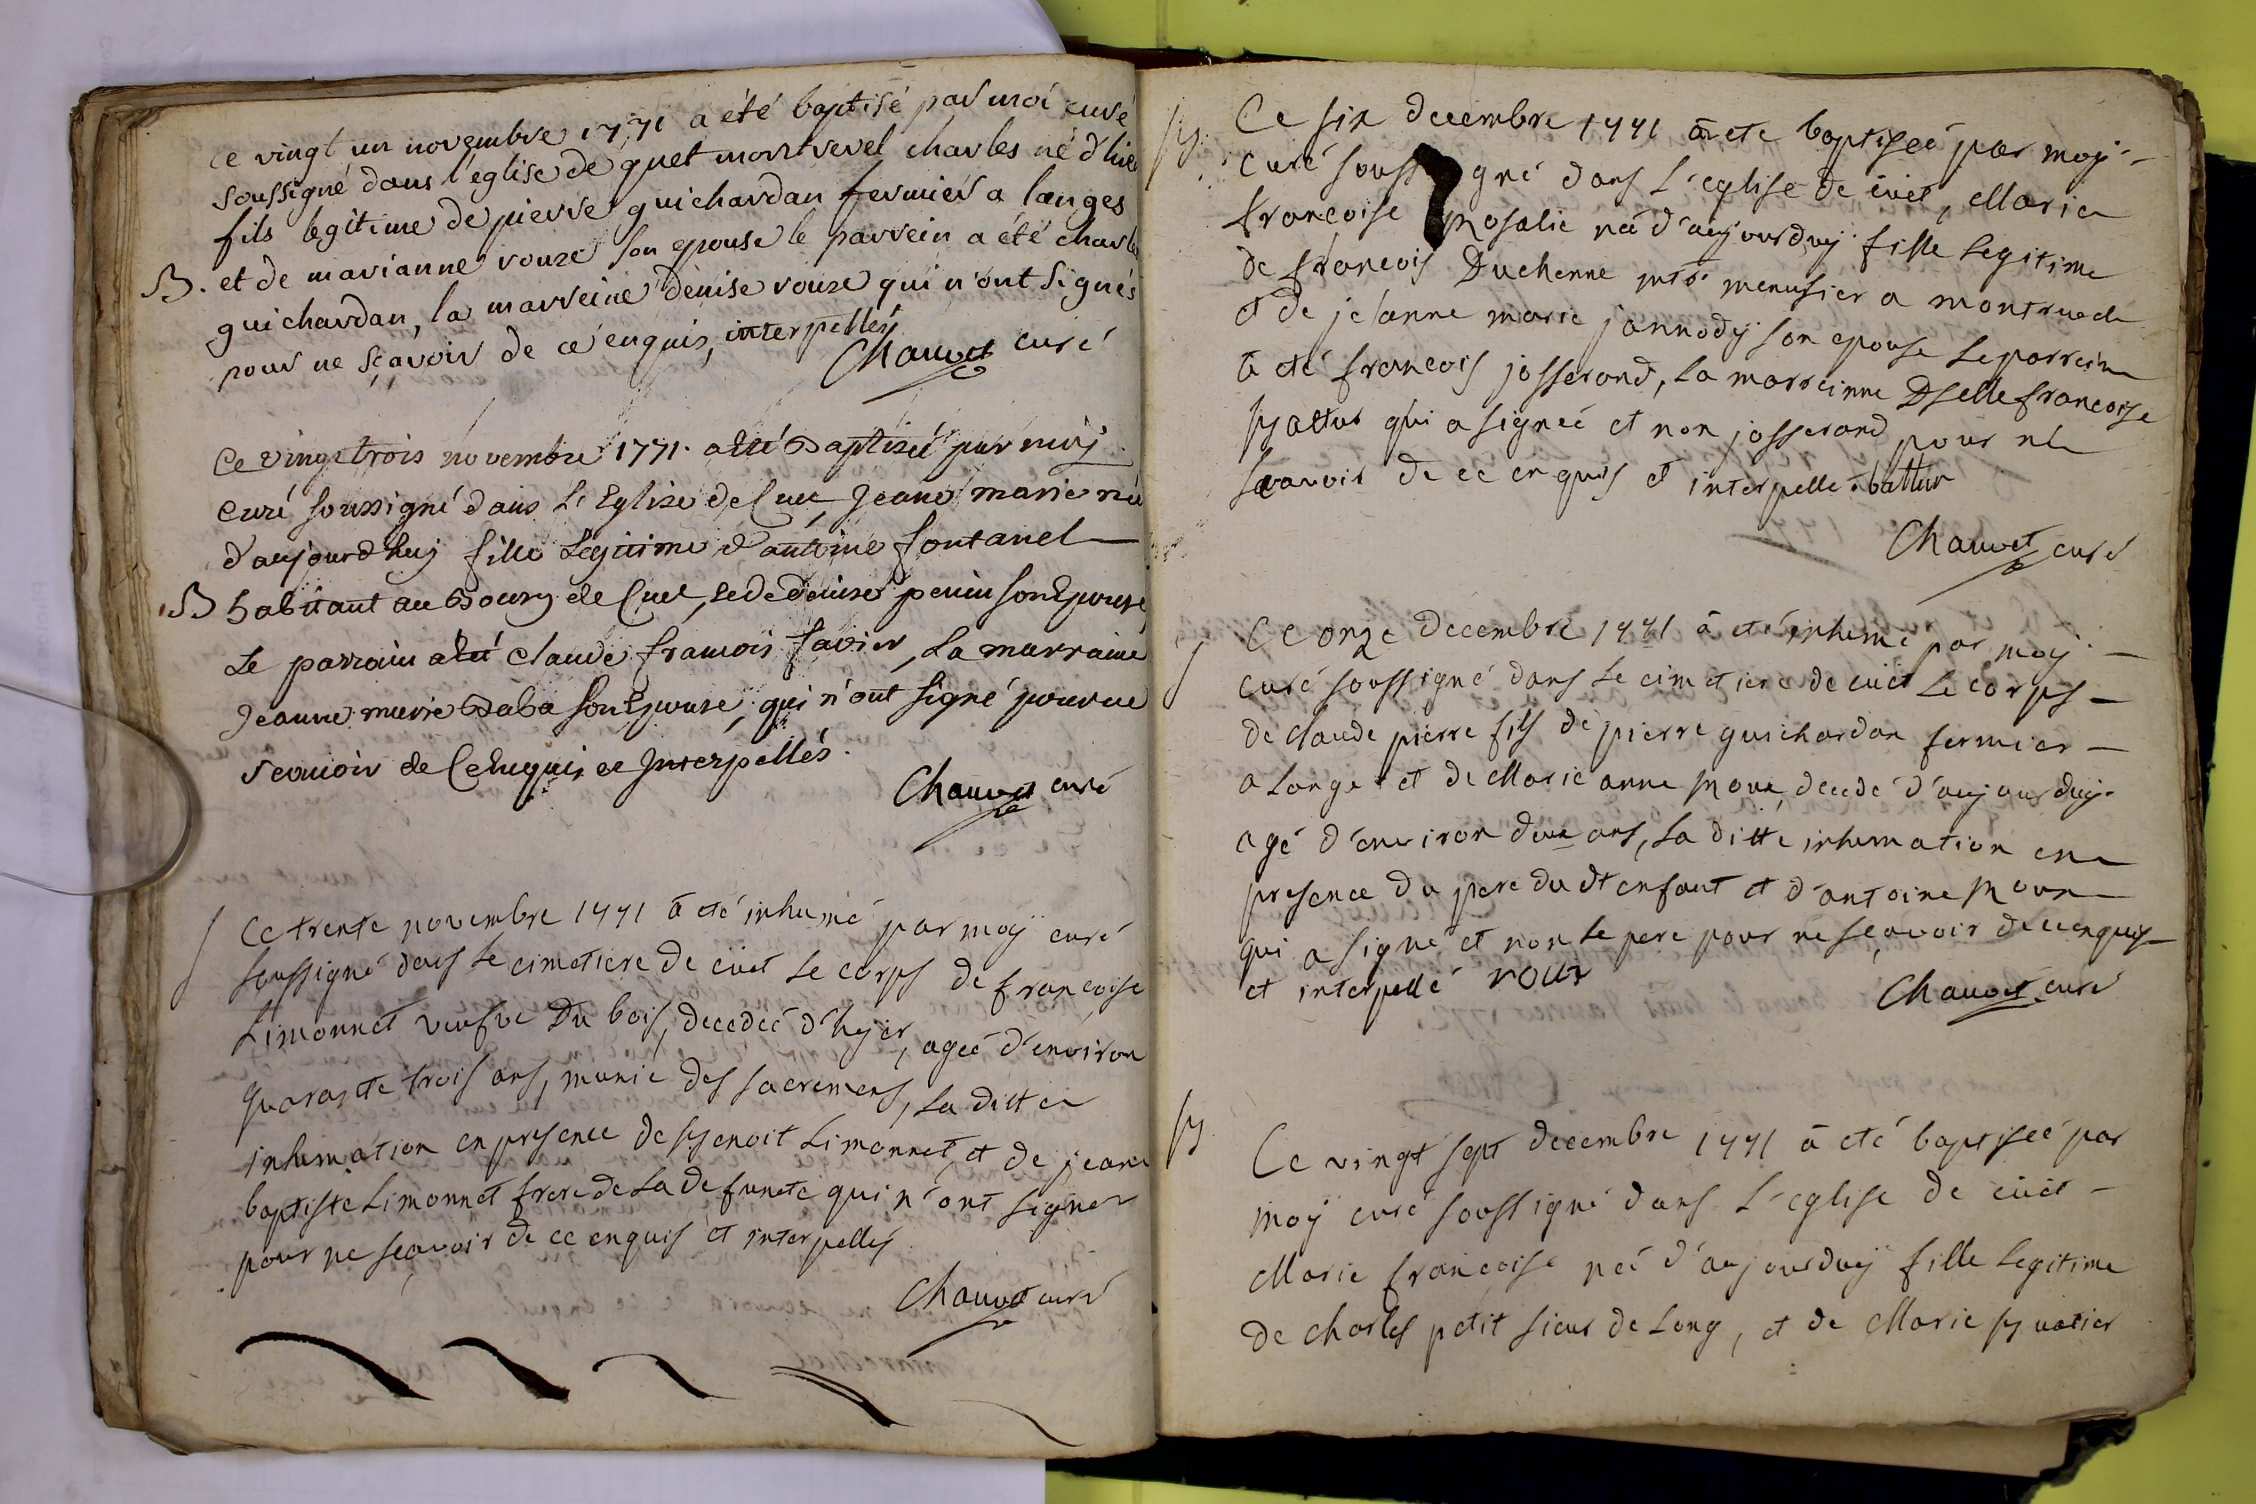 Ce vingt un novembre 1771 a été baptisé par moi curé
soussigné dans l'église de quet montrevel charles né d'hier
fils legitime de pierre guichardan fermier a langes
B. et de marianne rouze son epouse le parrein a été charles
guichardan, la marreine denise rouze qui n'ont signés
pour ne sçavoir de ce enquis, interpellés
Chauvet curé
Ce vingt trois novembre 1771. a été Baptizée par moÿ
curé soussigné dans L'Eglize de Cuet Jeane marie née
d'aujourdhuy fille Legitime d'antoine fontanel
B habitant au Bourg de Cuet, et de denise penin son Epouse
Le parrain a été claude francois favier, La marraine
Jeanne marie Baba son Epouse, qui n'ont signé pour ne
scavoir de Ce Enquis et Interpellés.
Chauvet curé
Ce trente novembre 1771 à eté inhumé par moÿ curé
soussigné dans le cimetiere de cüet le corps de francoise
Limonnet veufve Du bois, decedeé d'hyer, ageé d'environ
quarante trois ans, munie des sacremens, la ditte
inhumation en presence de Benoit Limonnet, et de jean
baptiste Limonnet frere de la defuncte qui n'ont signer
pour ne sçavoir de ce enquis et interpelles
Chauvet curé
B. Ce six decembre 1771 à eté baptiseé par moy
curé soussigné dans L'eglise de cüet, Marie
francoise Rosalie neé d'aujourduÿ fille legitime
de francois Duchenne mtre menusier a montrevel
et de jeanne marie jannodÿ son epouse le parrein
à eté francois josserand, la marreinne Dselle francoise
Battur qui a signeé et non josserand pour ne
scavoir de ce enquis et interpelle. battur
Chauvet curé
Ce onze decembre 1771 à eté inhumé par moy
curé soussigné dans le cimetiere de cüet le corps
de claude pierre fils de pierre guichardan fermier
a Lange et de Marie anne Roux, decedé d'aujourduy
agé d'environ deux ans, la ditte inhumation en
presence du pere du dt enfant et d'antoine Roux
qui a signé et non le pere pour ne sçavoir de ce enquis
et interpellé roux
Chauvet curé
B. Ce vingt sept decembre 1771 à eté baptiseé par
moÿ curé soussigné dans L'eglise de cüet
Marie francoise neé d'aujourduÿ fille legitime
de charles petit sieur de Long, et de Marie Buatier